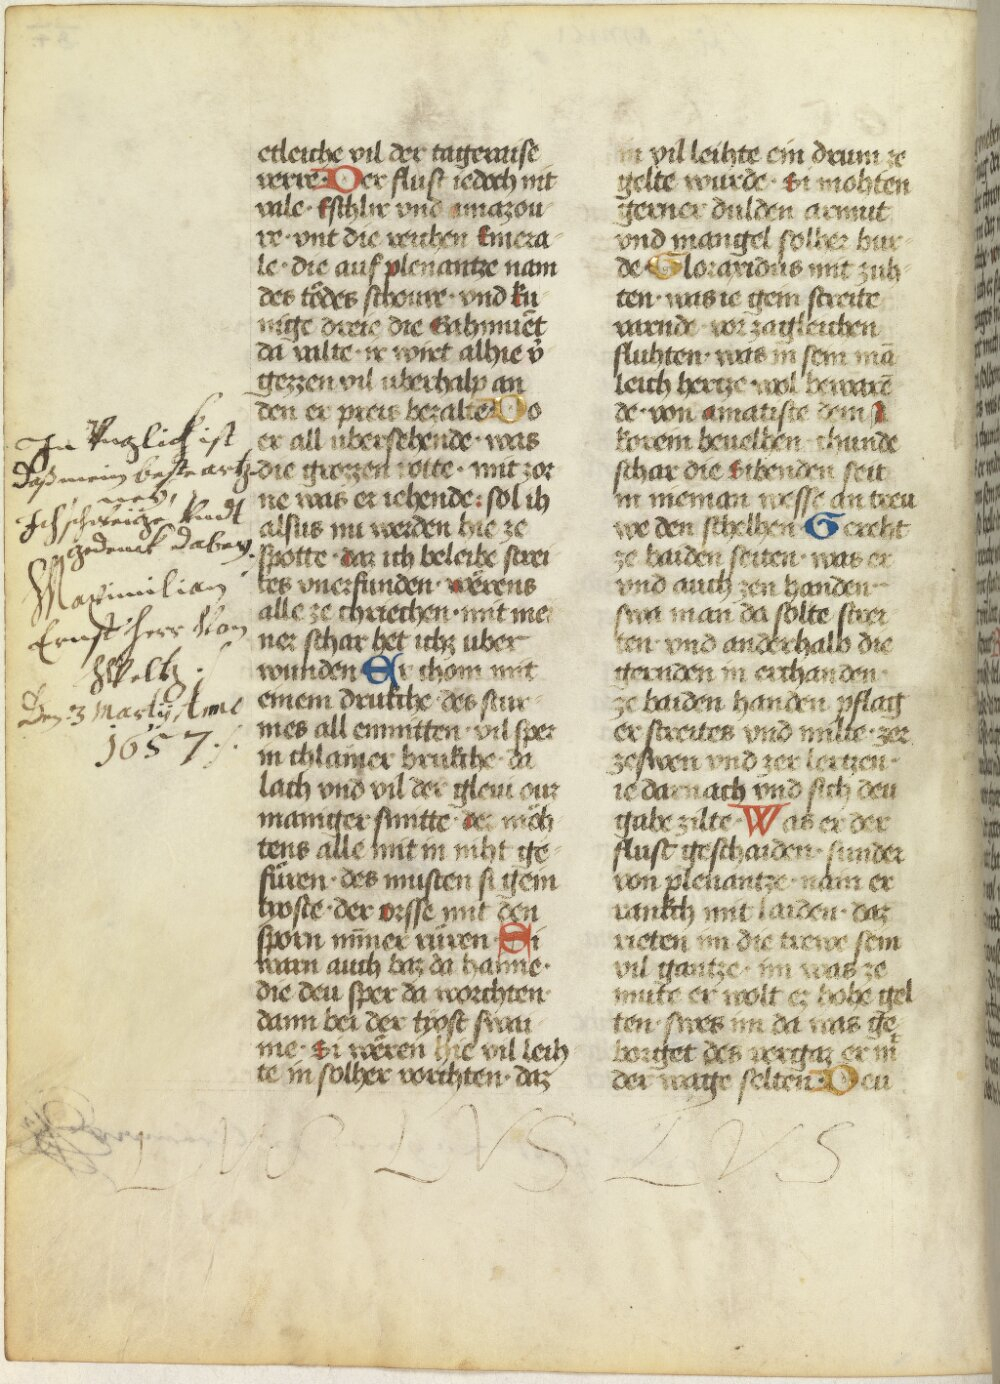 etleiche vil der tagraise
verre· Der flust iedoch nit
vale· Eschlir vnd amazou-
re· vnt die reichen Emera-
le· die auf plenantze nam
des tödes schoure· vnd ku-
nige dreie die Sabynniet
da valte· ir wirt alhie v̄
gezzen vil uberhalp an
den er preis bezalte· Do
er all ubersehende· was
die grozzen rotte· mit zor
ne was er iehende· sol ih
alsus nu werden hie ze
spotte· daz ich beleibe strei
tes vnerfunden· wërens
alle ze chriechen· mit mei
ner schar het ichz uber
wunden· Er chom mit
einem drukche· des stur-
mes all enmitten· vil sper
in chlainer brukche· da
lach vnd vil der gleui ouz
maniger snitte· der möh
tens alle mit in niht ge-
füren· des musten si gein
troste· der orsse mit den
sporn nim̄er rüren· Si
warn auch baz da haime·
die deu sper da worchten·
dann bei der trost swai-
me· Si wëren hie vil leih
te in solher vorchten· daz
in vil leihte ein drum ze
gelte wurde· Si mohten
gerner dulden armut
vnd mangel solher bur-
de· Gloraxidus mit zuh-
ten· was ie gein streite
varnde· vor zagleichen
fluhten· was in sein mā
leich hertze wol beware̅
de· von amatiste dem A
korem beuelhen· thunde
schar die Sibenden seit
in nieman wesse an treu
we den schelhen· Gereht
ze baiden seiten· was er
vnd auch zen handen·
swa man da solte strei-
ten· vnd anderhalb die
gernden in erchanden·
ze baiden handen pflag
er streites vnd milte· zer
zeswen vnd zer lertzen·
ie darnach vnd sich deu
gabe zilte· Was er der
flust geschaiden· sunder
von plenantze· nam er
rankch mit laiden· daz
rieten im die trewe sein
vil gantze· im was ze
mute er wolt ez hohe gel
ten· swes im da was ge
borget des vergaz er in
der wage selten· Deu
In Vnglick ist
daß mein beste artz-
ney,
Ich schweige Vndt
gedenck dabey.
Maximilian
Ernst Herr Von
Weltz
Den 3 Martÿ Anno
1657
LVS LVS LVS